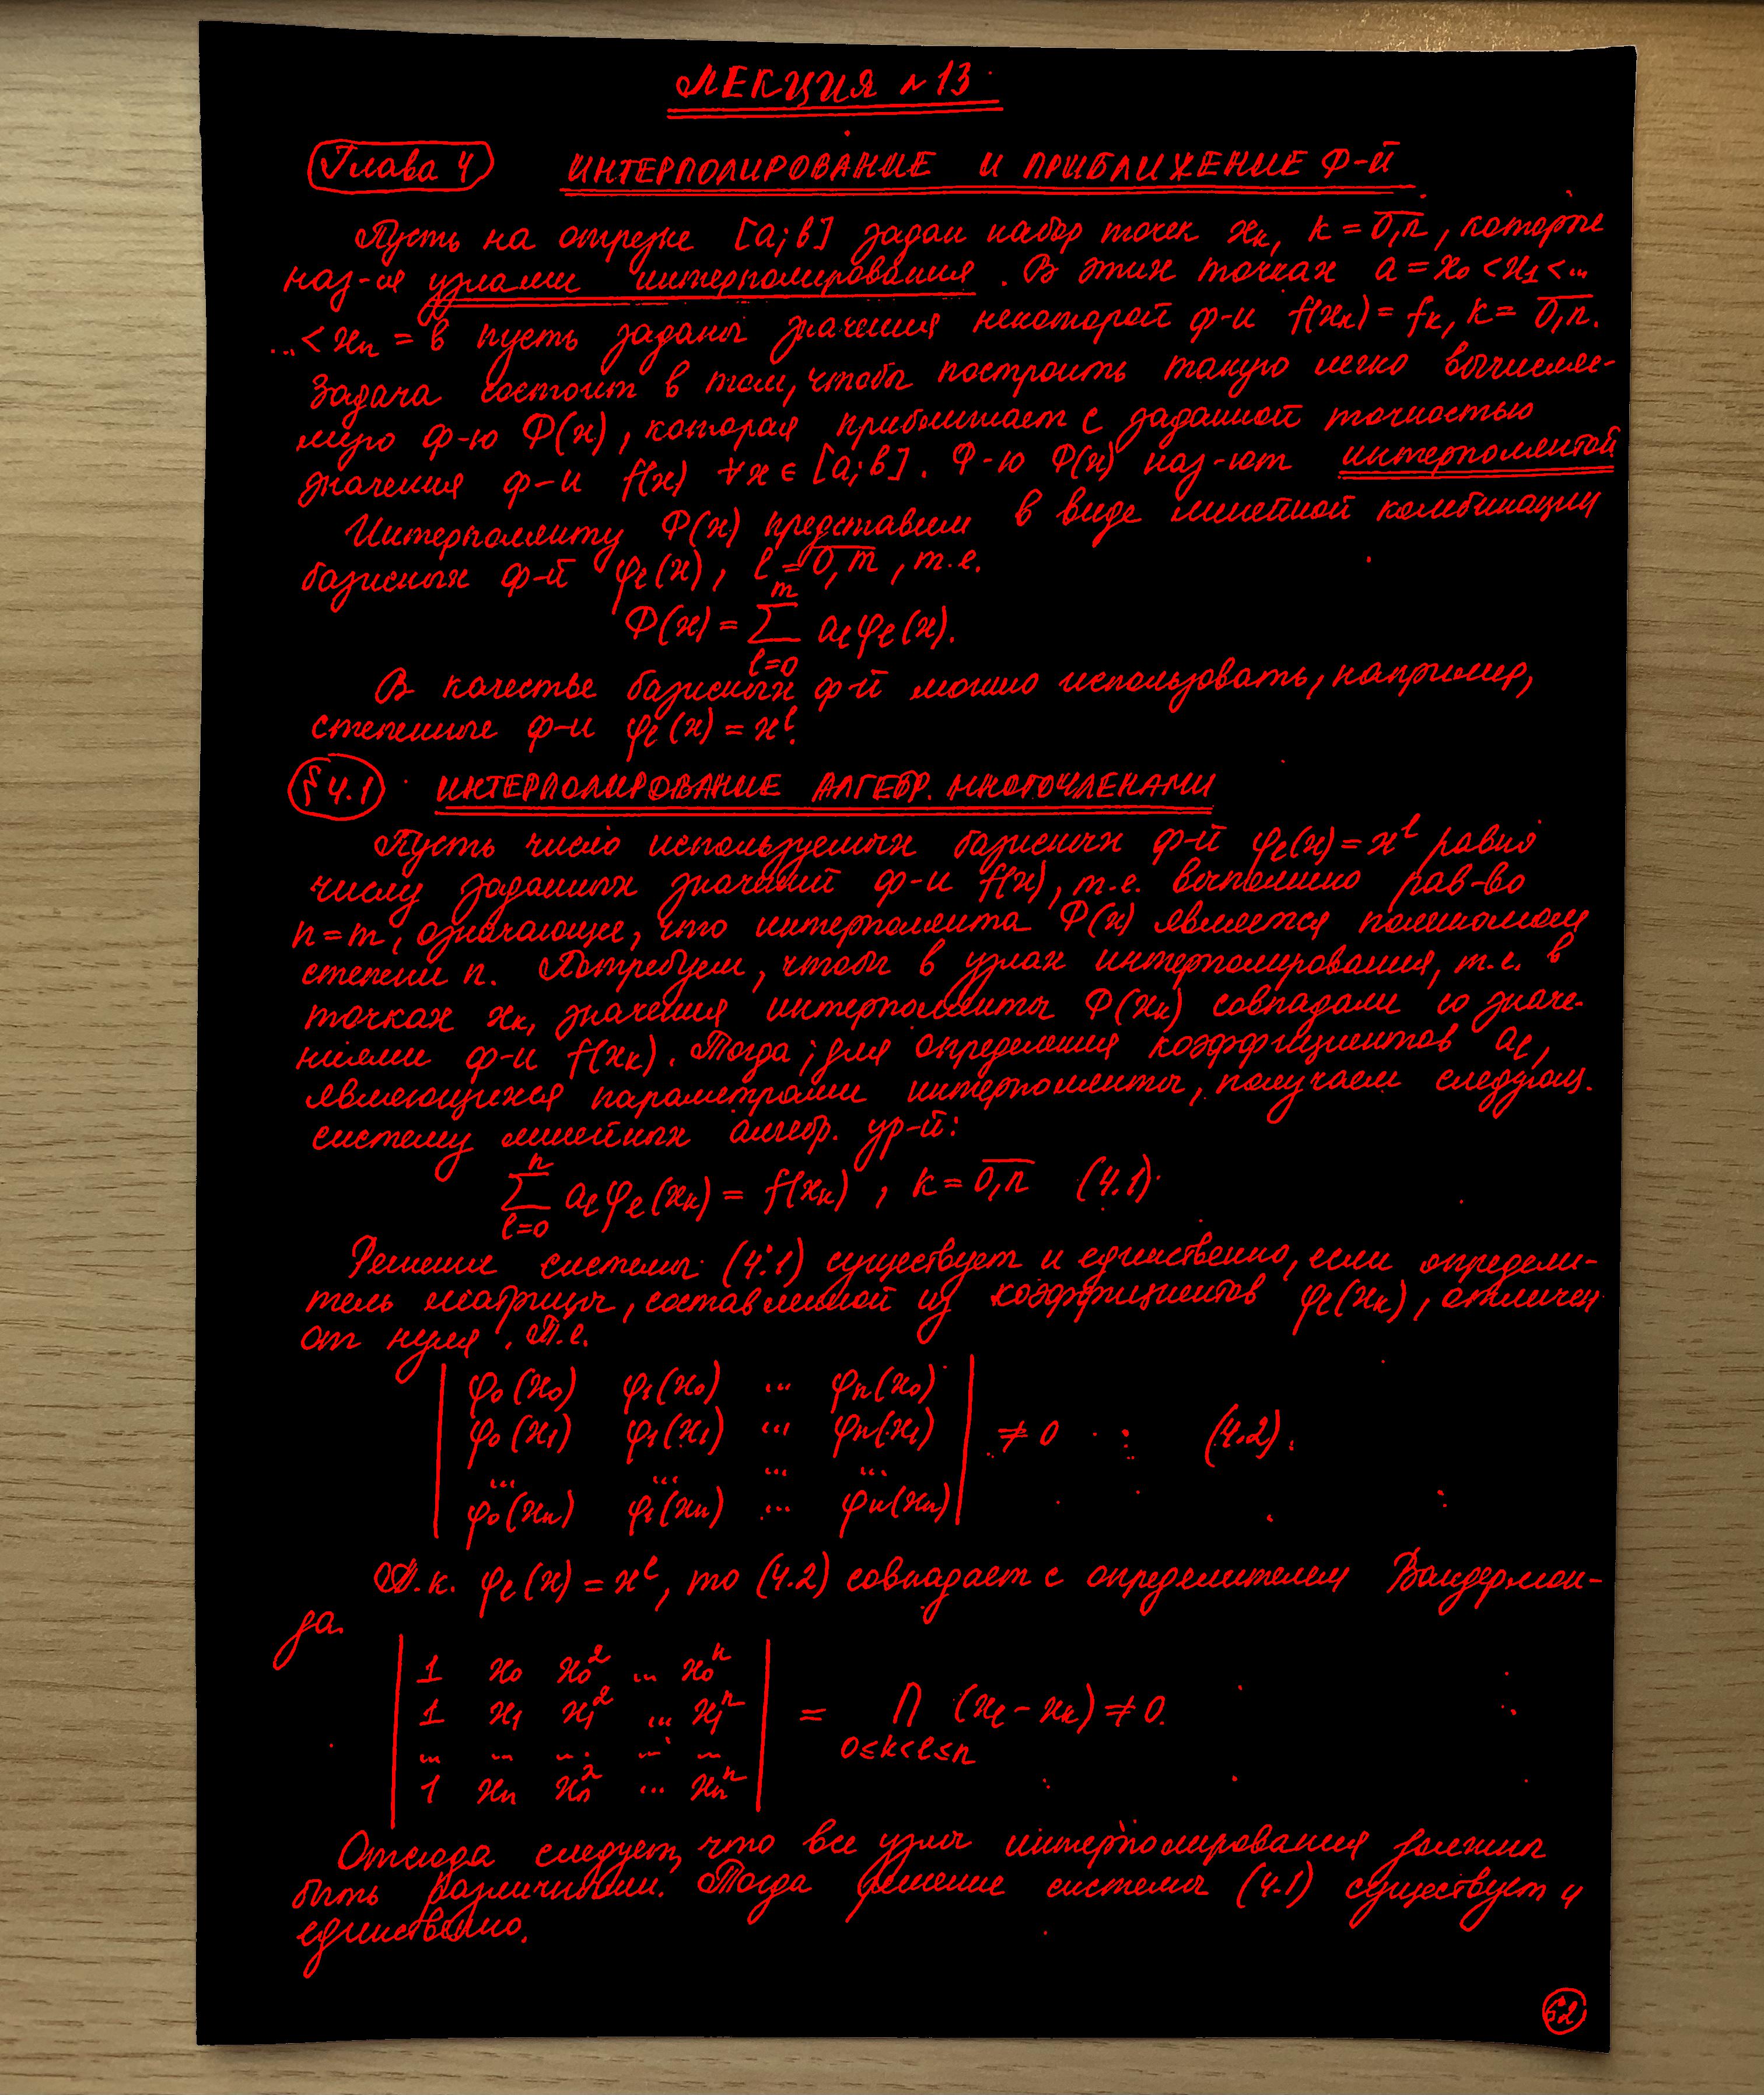 ЛЕКЦИЯ №13
Глава 4 ИНТЕРПОЛИРОВАНИЕ И ПРИБЛИЖЕНИЕ Ф-Й
Пусть на отрезке [a;b] задан набор точек xₖ, k = 0,n̅, которые
наз-ся узлами интерполирования. В этих точках a = x₀ < x₁ < ...
... < xₙ = b пусть заданы значения некоторой ф-и f(xₖ) = fₖ, k = 0,n̅.
Задача состоит в том, чтобы построить такую легко вычисляе-
мую ф-ю Φ(x), которая приближает с заданной точностью
значения ф-и f(x) ∀x ∈ [a;b]. Ф-ю Φ(x) наз-ют интерполянтой
Интерполянту Φ(x) представим в виде линейной комбинации
базисных ф-й φₗ(x), l = 0,m̅, т.е.
Φ(x) = ∑_{l=0}^{m} aₗφₗ(x).
В качестве базисных ф-й можно использовать, например,
степенные ф-и φₗ(x) = xˡ.
§4.1 ИНТЕРПОЛИРОВАНИЕ АЛГЕБР. МНОГОЧЛЕНАМИ
Пусть число используемых базисных ф-й φₗ(x) = xˡ равно
числу заданных значений ф-и f(x), т.е. выполнено рав-во
n = m, означающее, что интерполянта Φ(x) является полиномом
степени n. Потребуем, чтобы в узлах интерполирования, т.е. в
точках xₖ, значения интерполянты Φ(xₖ) совпадали со значе-
ниями ф-и f(xₖ). Тогда, для определения коэффициентов aₗ,
являющихся параметрами интерполянты, получаем следующ.
систему линейных алгебр. ур-й:
∑_{l=0}^{n} aₗφₗ(xₖ) = f(xₖ), k = 0,n̅ (4.1)
Решение системы (4.1) существует и единственно, если определи-
тель матрицы, составленной из коэффициентов φₗ(xₖ), отличен
от нуля. Т.е.
| φ₀(x₀) φ₁(x₀) ... φₙ(x₀) |
| φ₀(x₁) φ₁(x₁) ... φₙ(x₁) | ≠ 0 (4.2).
| ... ... ... ... |
| φ₀(xₙ) φ₁(xₙ) ... φₙ(xₙ) |
Т.к. φₗ(x) = xˡ, то (4.2) совпадает с определителем Вандермон-
да.
| 1 x₀ x₀² ... x₀ⁿ |
| 1 x₁ x₁² ... x₁ⁿ | = ∏_{0≤k<l≤n} (xₗ - xₖ) ≠ 0.
| ... ... ... ... ... |
| 1 xₙ xₙ² ... xₙⁿ |
Отсюда следует, что все узлы интерполирования должны
быть различными. Тогда решение системы (4.1) существует и
единственно.
62